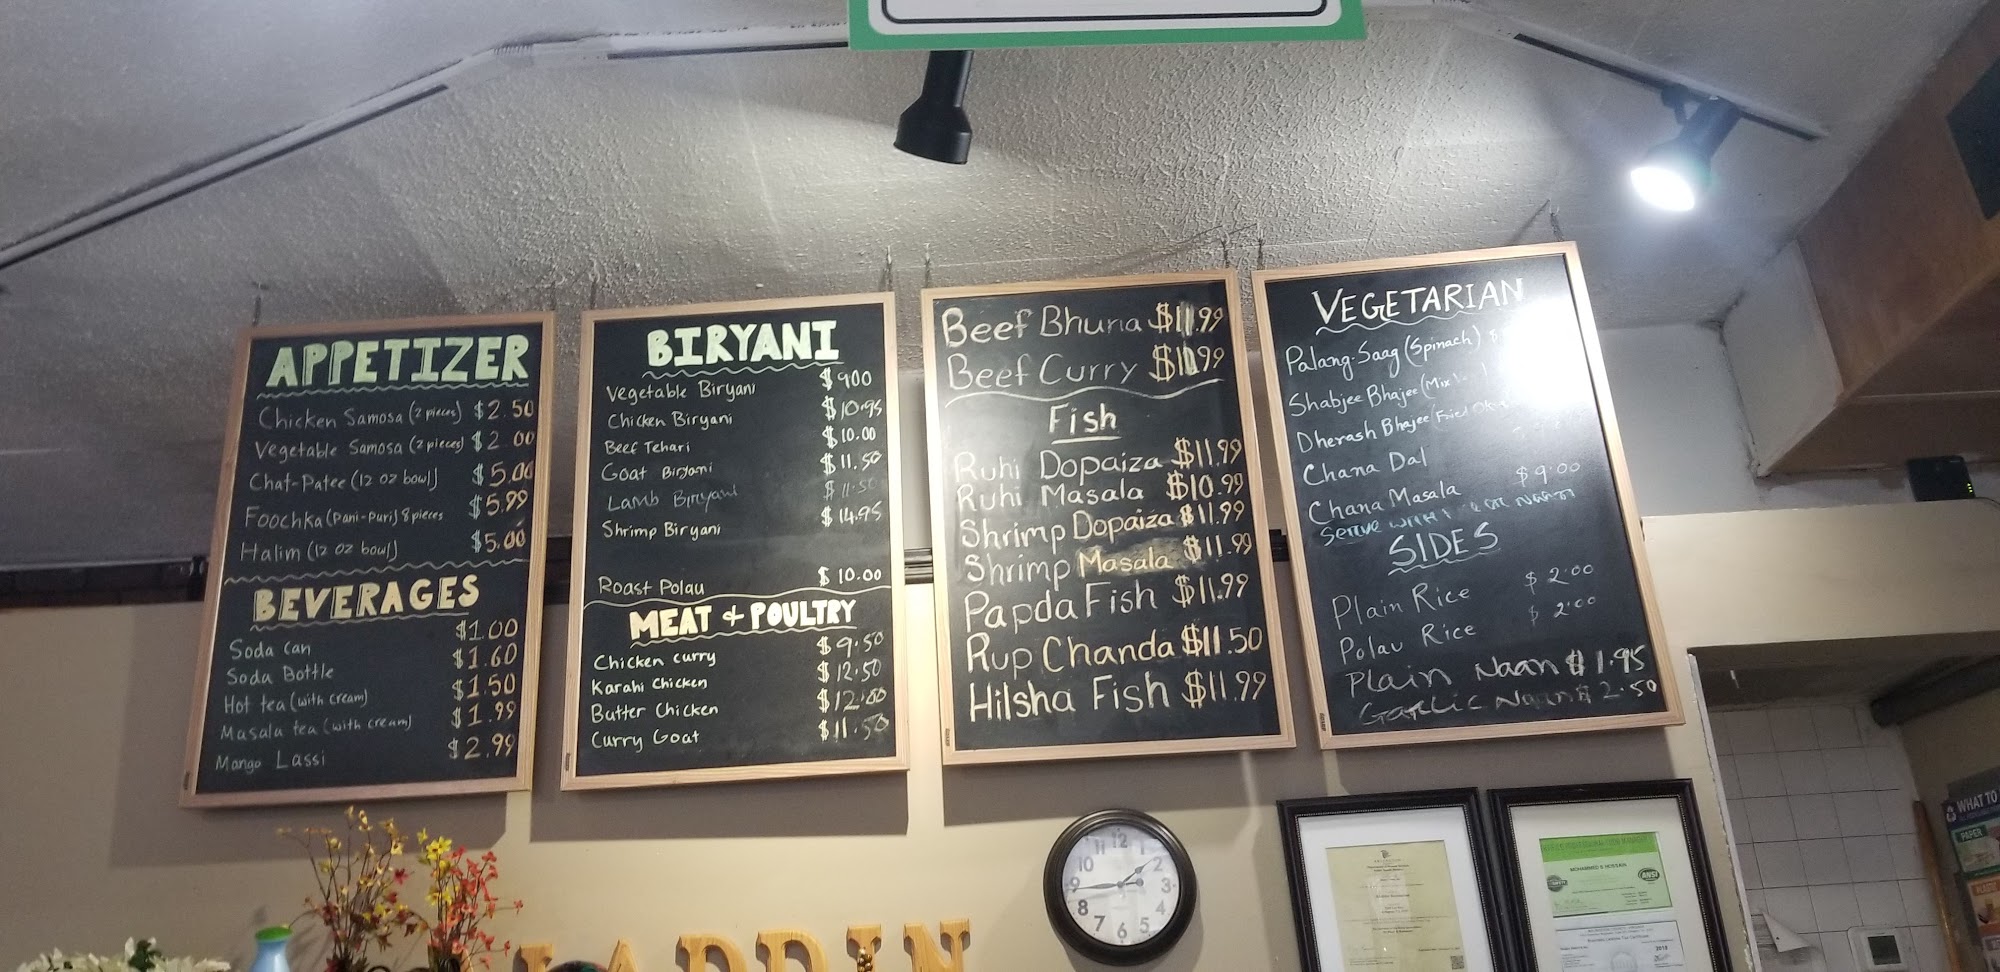 APPETIZER
Chicken Samosa (2 pieces) $2.50
Vegetable Samosa (2 pieces) $2.00
Chat-Patee (12 oz bowl) $5.00
Foochka (Pani-Puri) 8 pieces $5.99
Halim (12 oz bowl) $5.00
BEVERAGES
Soda can $1.00
Soda Bottle $1.60
Hot tea (with cream) $1.50
Masala tea (with cream) $1.99
Mango Lassi $2.99
BIRYANI
Vegetable Biryani $9.00
Chicken Biryani $10.95
Beef Tehari $10.00
Goat Biryani $11.50
Lamb Biryani $11.50
Shrimp Biryani $14.95
Roast Polau $10.00
MEAT & POULTRY
Chicken curry $9.50
Karahi Chicken $12.50
Butter Chicken $12.00
Curry Goat $11.50
Beef Bhuna $11.99
Beef Curry $10.99
Fish
Ruhi Dopaiza $11.99
Ruhi Masala $10.99
Shrimp Dopaiza $11.99
Shrimp Masala $11.99
Papda Fish $11.99
Rup Chanda $11.50
Hilsha Fish $11.99
VEGETARIAN
Palang-Saag (Spinach) $
Shabjee Bhajee (Mix
Dherash Bhajee (Fried
Chana Dal
Chana Masala $9.00
Serve with NAAN
SIDES
Plain Rice $2.00
Polau Rice $2.00
Plain Naan $1.95
Garlic Naan $2.50
12
1
2
3
4
5
6
7
8
9
10
11
LADDIN
MOHAMMED S HOSSAIN
ANSI
2018
WHAT TO
PAPER